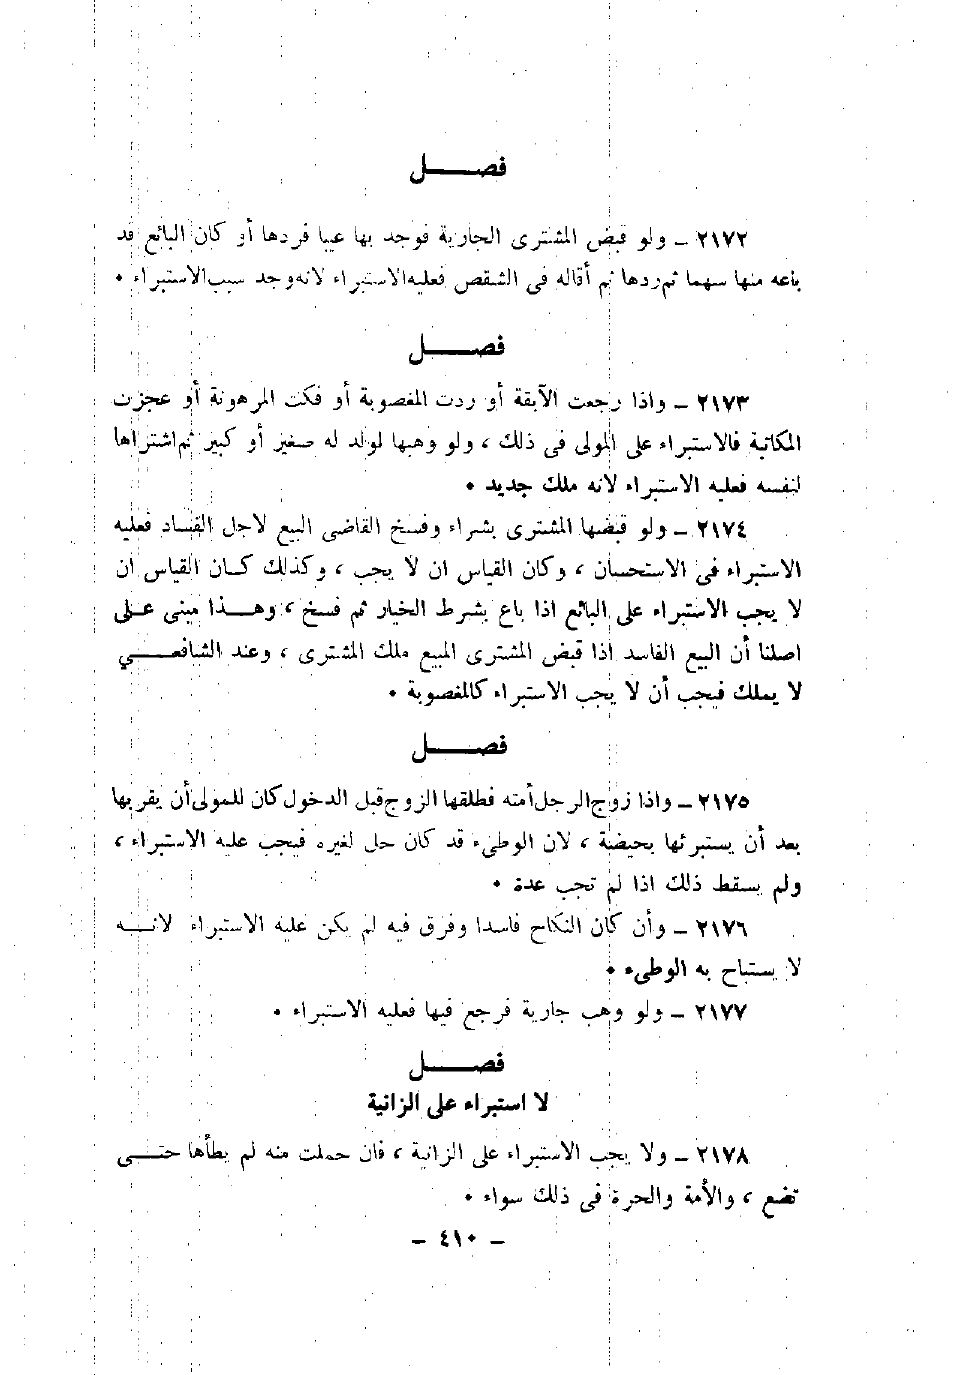 فصـــــل
٢١٧٢ – ولو قبض المشترى الجارية فوجد بها عيبا فردها أو كان البائع قد
باعه منها سهما ثم ردها ثم أقاله فى الشقص فعليه الاستبراء لانه وجد سبب الاستبراء ٠
فصـــــل
٢١٧٣ – واذا رجعت الآبقة أو ردت المغصوبة أو فكت المرهونة أو عجزت
المكاتبة فالاستبراء على المولى فى ذلك ، ولو وهبها لولد له صغير أو كبير ثم اشتراها
لنفسه فعليه الاستبراء لانه ملك جديد ٠
٢١٧٤ – ولو قبضها المشترى بشراء وفسخ القاضى البيع لاجل الفساد فعليه
الاستبراء فى الاستحسان ، وكان القياس ان لا يجب ، وكذلك كـان القياس ان
لا يجب الاستبراء على البائع اذا باع بشرط الخيار ثم فسخ ، وهـــذا مبنى عـلى
اصلنا أن البيع الفاسد اذا قبض المشترى المبيع ملك المشترى ، وعند الشافعـــــي
لا يملك فيجب أن لا يجب الاستبراء كالمغصوبة ٠
فصـــــل
٢١٧٥ – واذا زوج الرجل أمته فطلقها الزوج قبل الدخول كان للمولى أن يقربها
بعد أن يستبرئها بحيضة ، لان الوطىء قد كان حل لغيره فيجب عليه الاستبراء ،
ولم يسقط ذلك اذا لم تجب عدة ٠
٢١٧٦ – وأن كان النكاح فاسدا وفرق فيه لم يكن عليه الاستبراء لانـــه
لا يستباح به الوطىء ٠
٢١٧٧ – ولو وهب جارية فرجع فيها فعليه الاستبراء ٠
فصـــــل
لا استبراء على الزانية
٢١٧٨ – ولا يجب الاستبراء على الزانية ، فان حملت منه لم يطأها حتـــى
تضع ، والأمة والحرة فى ذلك سواء ٠
– ٤١٠ –